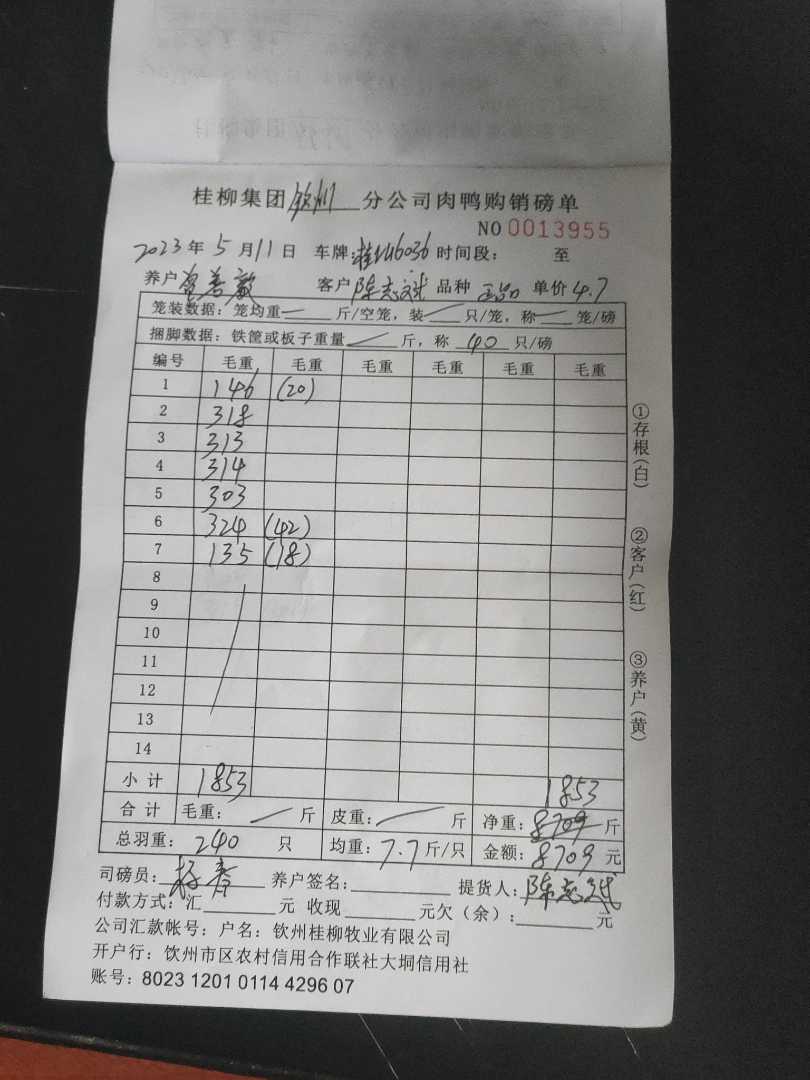 桂柳集团钦州分公司肉鸭购销磅单
NO 0013955
2023年5月11日 车牌:桂 46036 时间段: 至
养户 善敏 客户 陈志斌 品种 单价 4.7
笼装数据:笼均重 斤/空笼,装 只/笼,称 笼/磅
捆脚数据:铁筐或板子重量 斤,称 40 只/磅
编号 毛重 毛重 毛重 毛重 毛重 毛重
1 146 (20)
2 318
3 313
4 314
5 303
6 324 (42)
7 135 (18)
8
9
10
11
12
13
14
小计 1853 1853
合计 毛重: 斤 皮重: 斤 净重: 8709 斤
总羽重: 240 只 均重: 7.7 斤/只 金额: 8709 元
司磅员: 养户签名: 提货人: 陈志斌
付款方式:汇 元 收现 元欠(余): 元
公司汇款帐号:户名:钦州桂柳牧业有限公司
开户行:钦州市区农村信用合作联社大垌信用社
账号:8023 1201 0114 4296 07
①存根(白)
②客户(红)
③养户(黄)